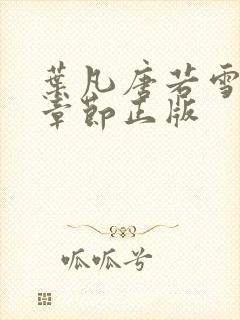 葉凡唐若雪
章節正版
呱呱兮